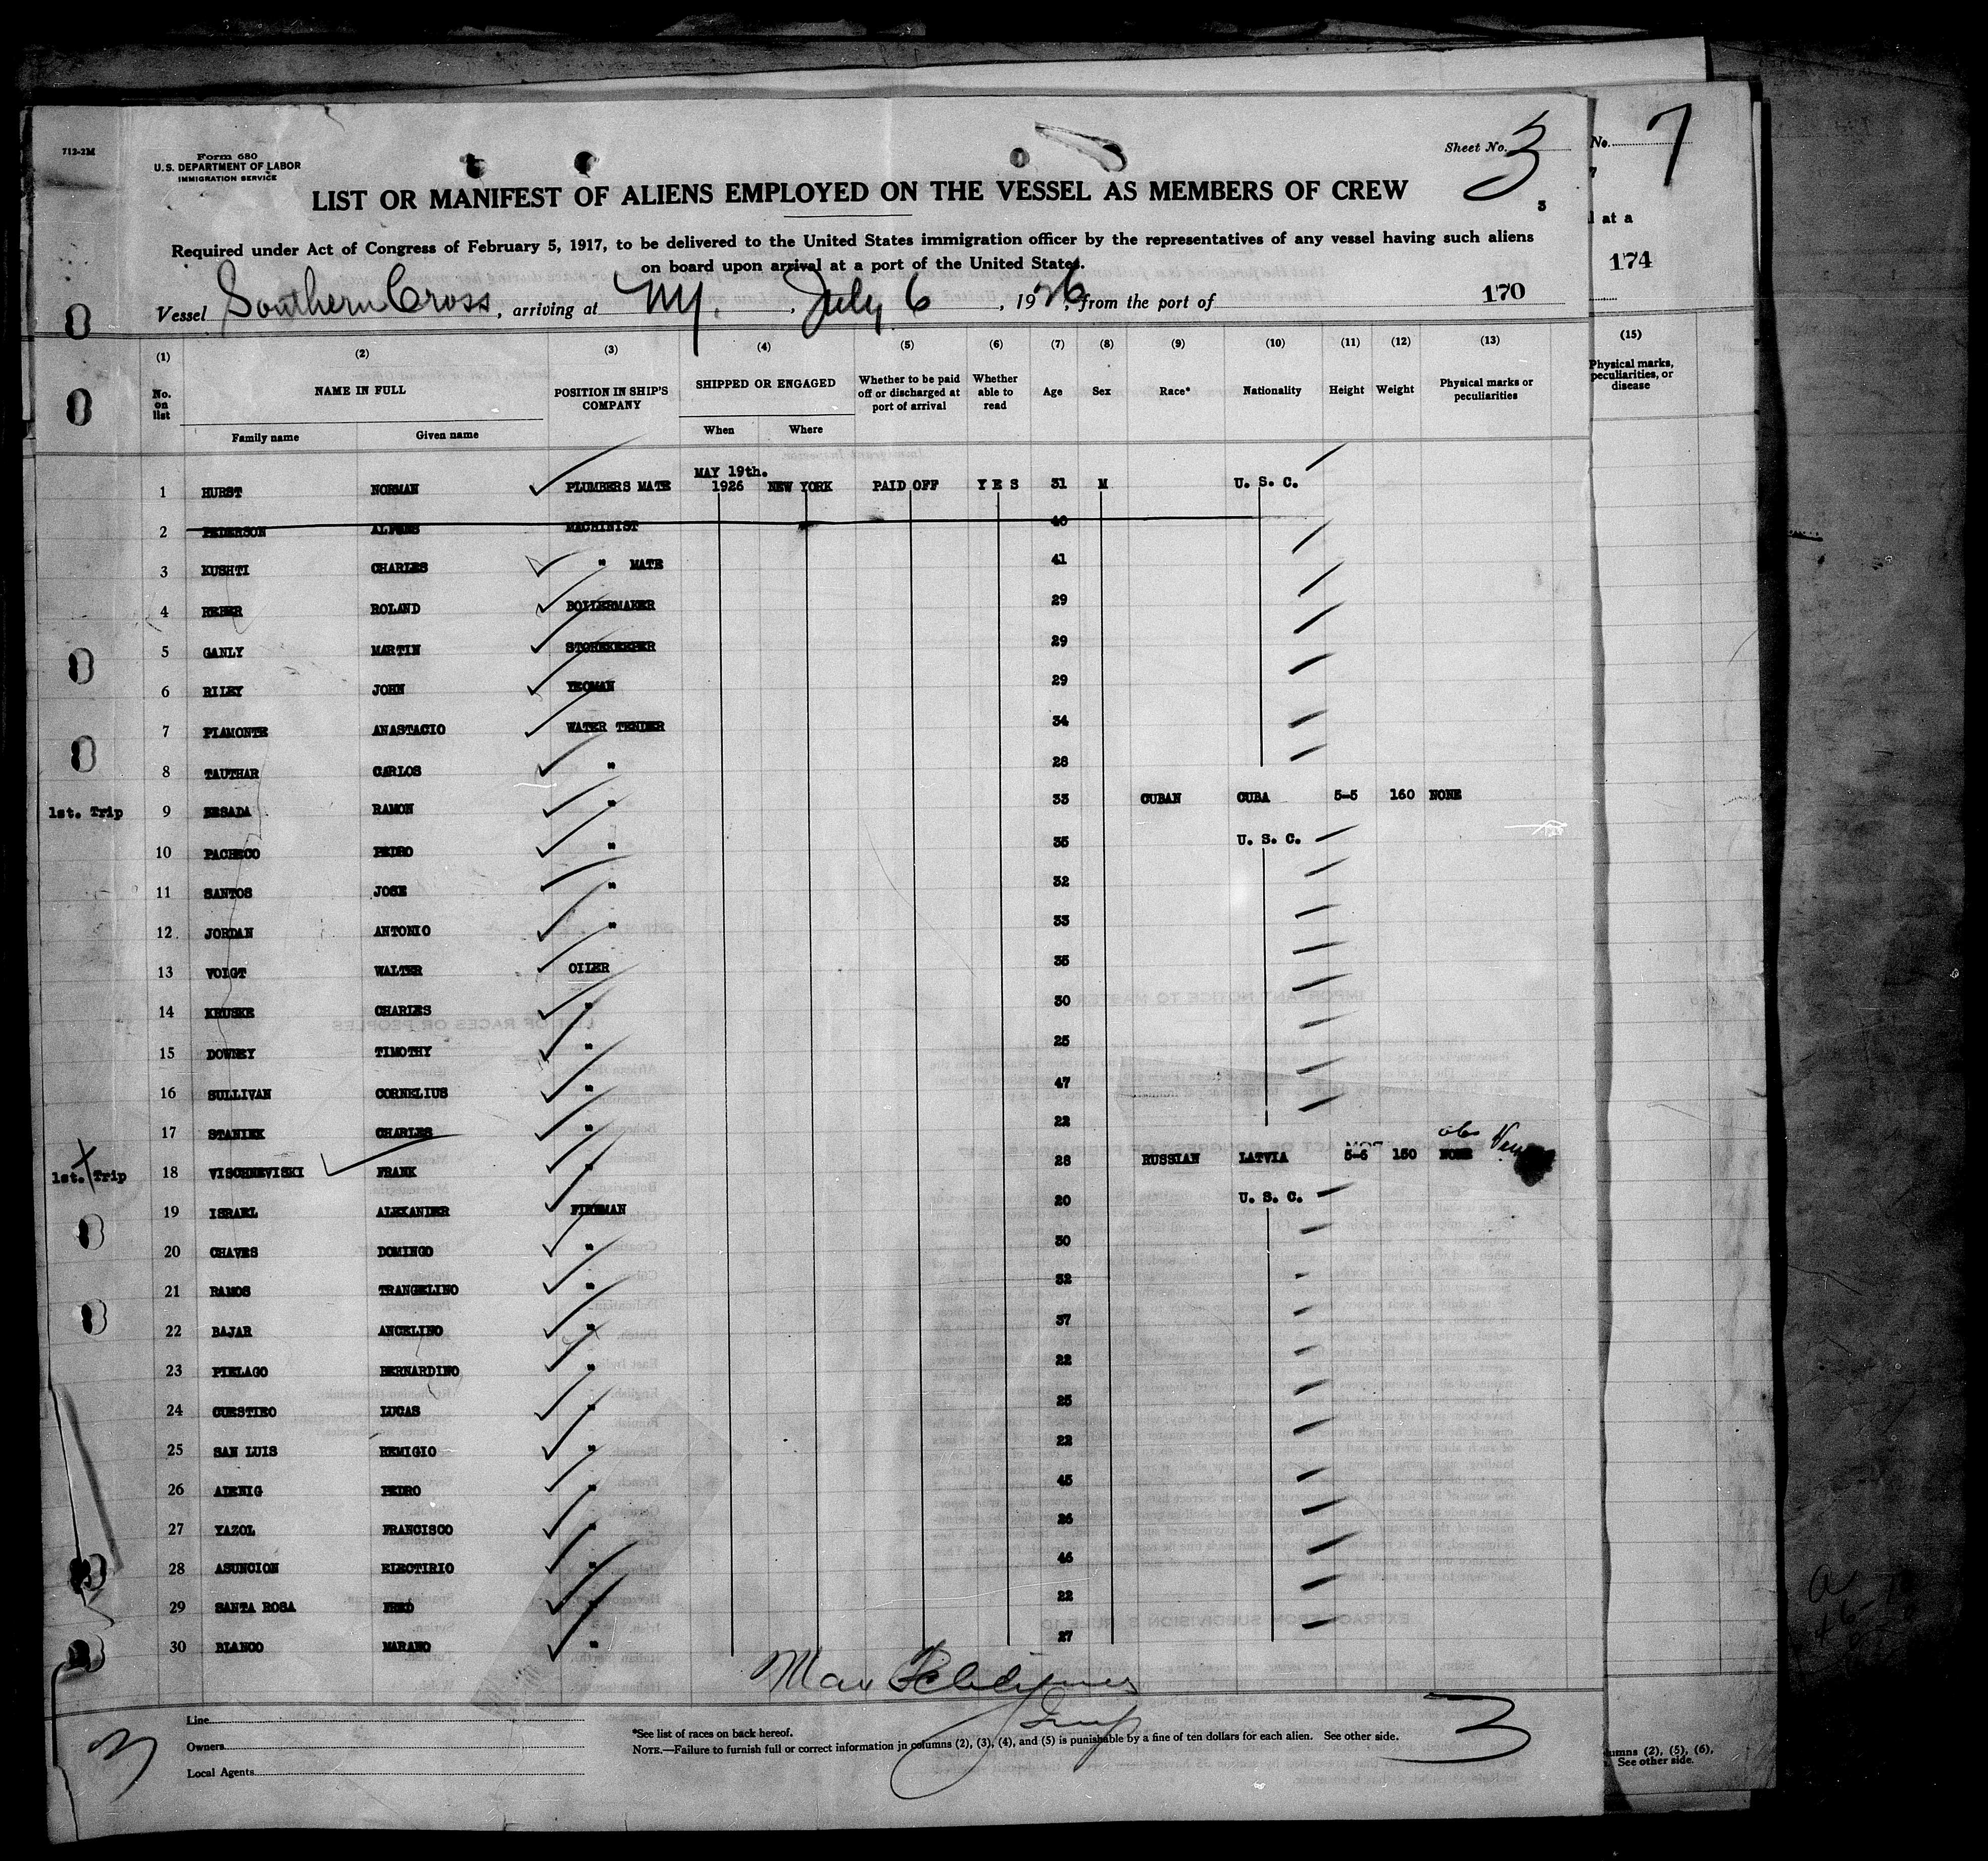 712-2M
Form 680
U.S. DEPARTMENT OF LABOR
IMMIGRATION SERVICE
Sheet No. 3
3
LIST OR MANIFEST OF ALIENS EMPLOYED ON THE VESSEL AS MEMBERS OF CREW
Required under Act of Congress of February 5, 1917, to be delivered to the United States immigration officer by the representatives of any vessel having such aliens
on board upon arrival at a port of the United States.
Vessel Southern Cross, arriving at NY., July 6, 1926, from the port of 170
(1) (2) (3) (4) (5) (6) (7) (8) (9) (10) (11) (12) (13)
No. on list NAME IN FULL POSITION IN SHIP'S COMPANY SHIPPED OR ENGAGED Whether to be paid off or discharged at port of arrival Whether able to read Age Sex Race* Nationality Height Weight Physical marks or peculiarities
Family name Given name When Where
1 HURST NORMAN PLUMBERS MATE MAY 19th. 1926 NEW YORK PAID OFF YES 31 M U. S. C.
2 PEDERSON MACHINIST 40
3 KUSHTI CHARLES " MATE 41
4 REBER ROLAND BOILERMAKER 29
5 GANLY MARTIN STOREKEEPER 29
6 RILEY JOHN YEOMAN 29
7 PIAMONTE ANASTACIO WATER TENDER 34
8 TAUTHAR CARLOS " 28
1st. Trip 9 NESADA RAMON " 33 CUBAN CUBA 5-5 160 NONE
10 PACHECO PEDRO " 35 U. S. C.
11 SANTOS JOSE " 32
12 JORDAN ANTONIO " 33
13 VOIGT WALTER OILER 35
14 KRUSKE CHARLES " 30
15 DOWNEY TIMOTHY " 25
16 SULLIVAN CORNELIUS " 47
17 STANIEK CHARLES " 22
1st. Trip 18 VISCHNEVISKI FRANK " 28 RUSSIAN LATVIA 5-6 150 NONE
19 ISRAEL ALEXANDER FIREMAN 20 U. S. C.
20 CHAVES DOMINGO " 30
21 RAMOS TRANGELINO " 32
22 BAJAR ANGELINO " 37
23 PIELAGO BERNARDINO " 22
24 CUESTIEO LUCAS " 25
25 SAN LUIS REMIGIO " 22
26 AIENIG PEDRO " 45
27 YAZOL FRANCISCO " 26
28 ASUNCION ELECTIRIO " 46
29 SANTA ROSA FRED " 22
30 BLANCO MARANO " 27
Line
Owners
Local Agents
*See list of races on back hereof.
NOTE.—Failure to furnish full or correct information in columns (2), (3), (4), and (5) is punishable by a fine of ten dollars for each alien. See other side.
3
3
No. 7
at a
174
(15)
Physical marks, peculiarities, or disease
(2), (5), (6),
See other side.